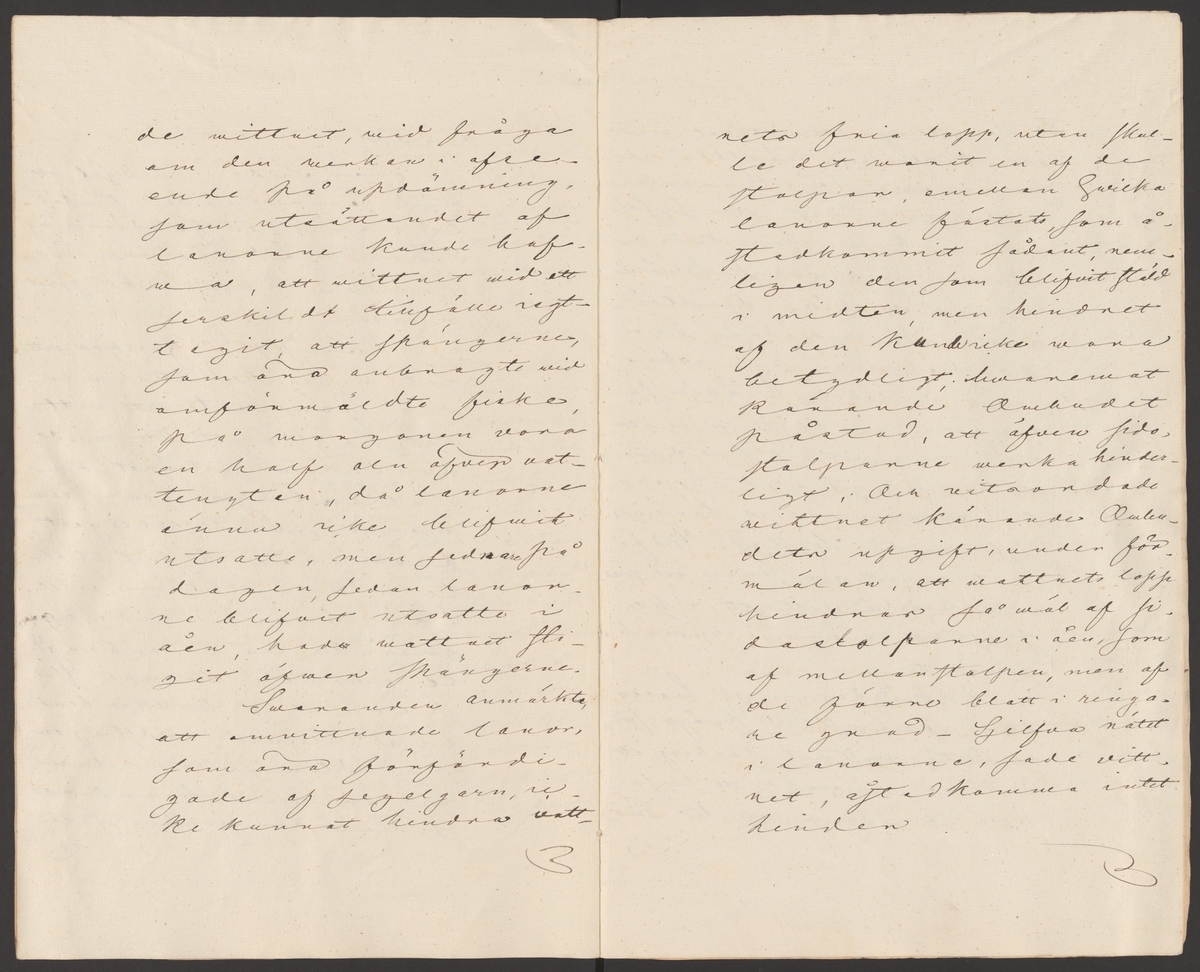 de wittnet, wid fråga
om den werkan i afse-
ende på updämning,
som utsättandet af
lanorne kunde haf-
wa, att wittnet wid ett
serskildt tillfälle iagt-
tagit, att spängerne,
som äro anbragte wid
omförmäldte fiske,
på morgonen vara
en half aln öfver vat-
tenytan, då lanorne
ännu icke blifvit
utsatte, men sednare på
dagen, sedan lanor-
ne blifvit utsatte i
åen, hade wattnet sti-
git öfwer spängerne.
Swaranden anmärkte,
att omvittnade lanor,
som äro förfärdi-
gade af segelgarn, ic-
ke kunnat hindra vatt-
nets fria lopp, utan skul-
le det warit en af de
stolpar, emellan hwilka
lanorne fästats, som å-
stadkommit sådant, nem-
ligen den som blifvit stäld
i midten, men hindret
af den kunde icke wara
betydligt; hwaremot
Kärande Ombudet
påstod, att äfven sido-
stolparne werka hinder-
ligt. Och vitsordade
wittnet Kärande Ombu-
dets upgift, under för-
mälan, att wattnets lopp
hindras så wäl af si-
dostolparne i åen, som
af mellanstolpen, men af
de förre blott i ringa-
re grad – Sjelfva nätet
i lanorne, sade vitt-
net, åstadkomma intet
hinder